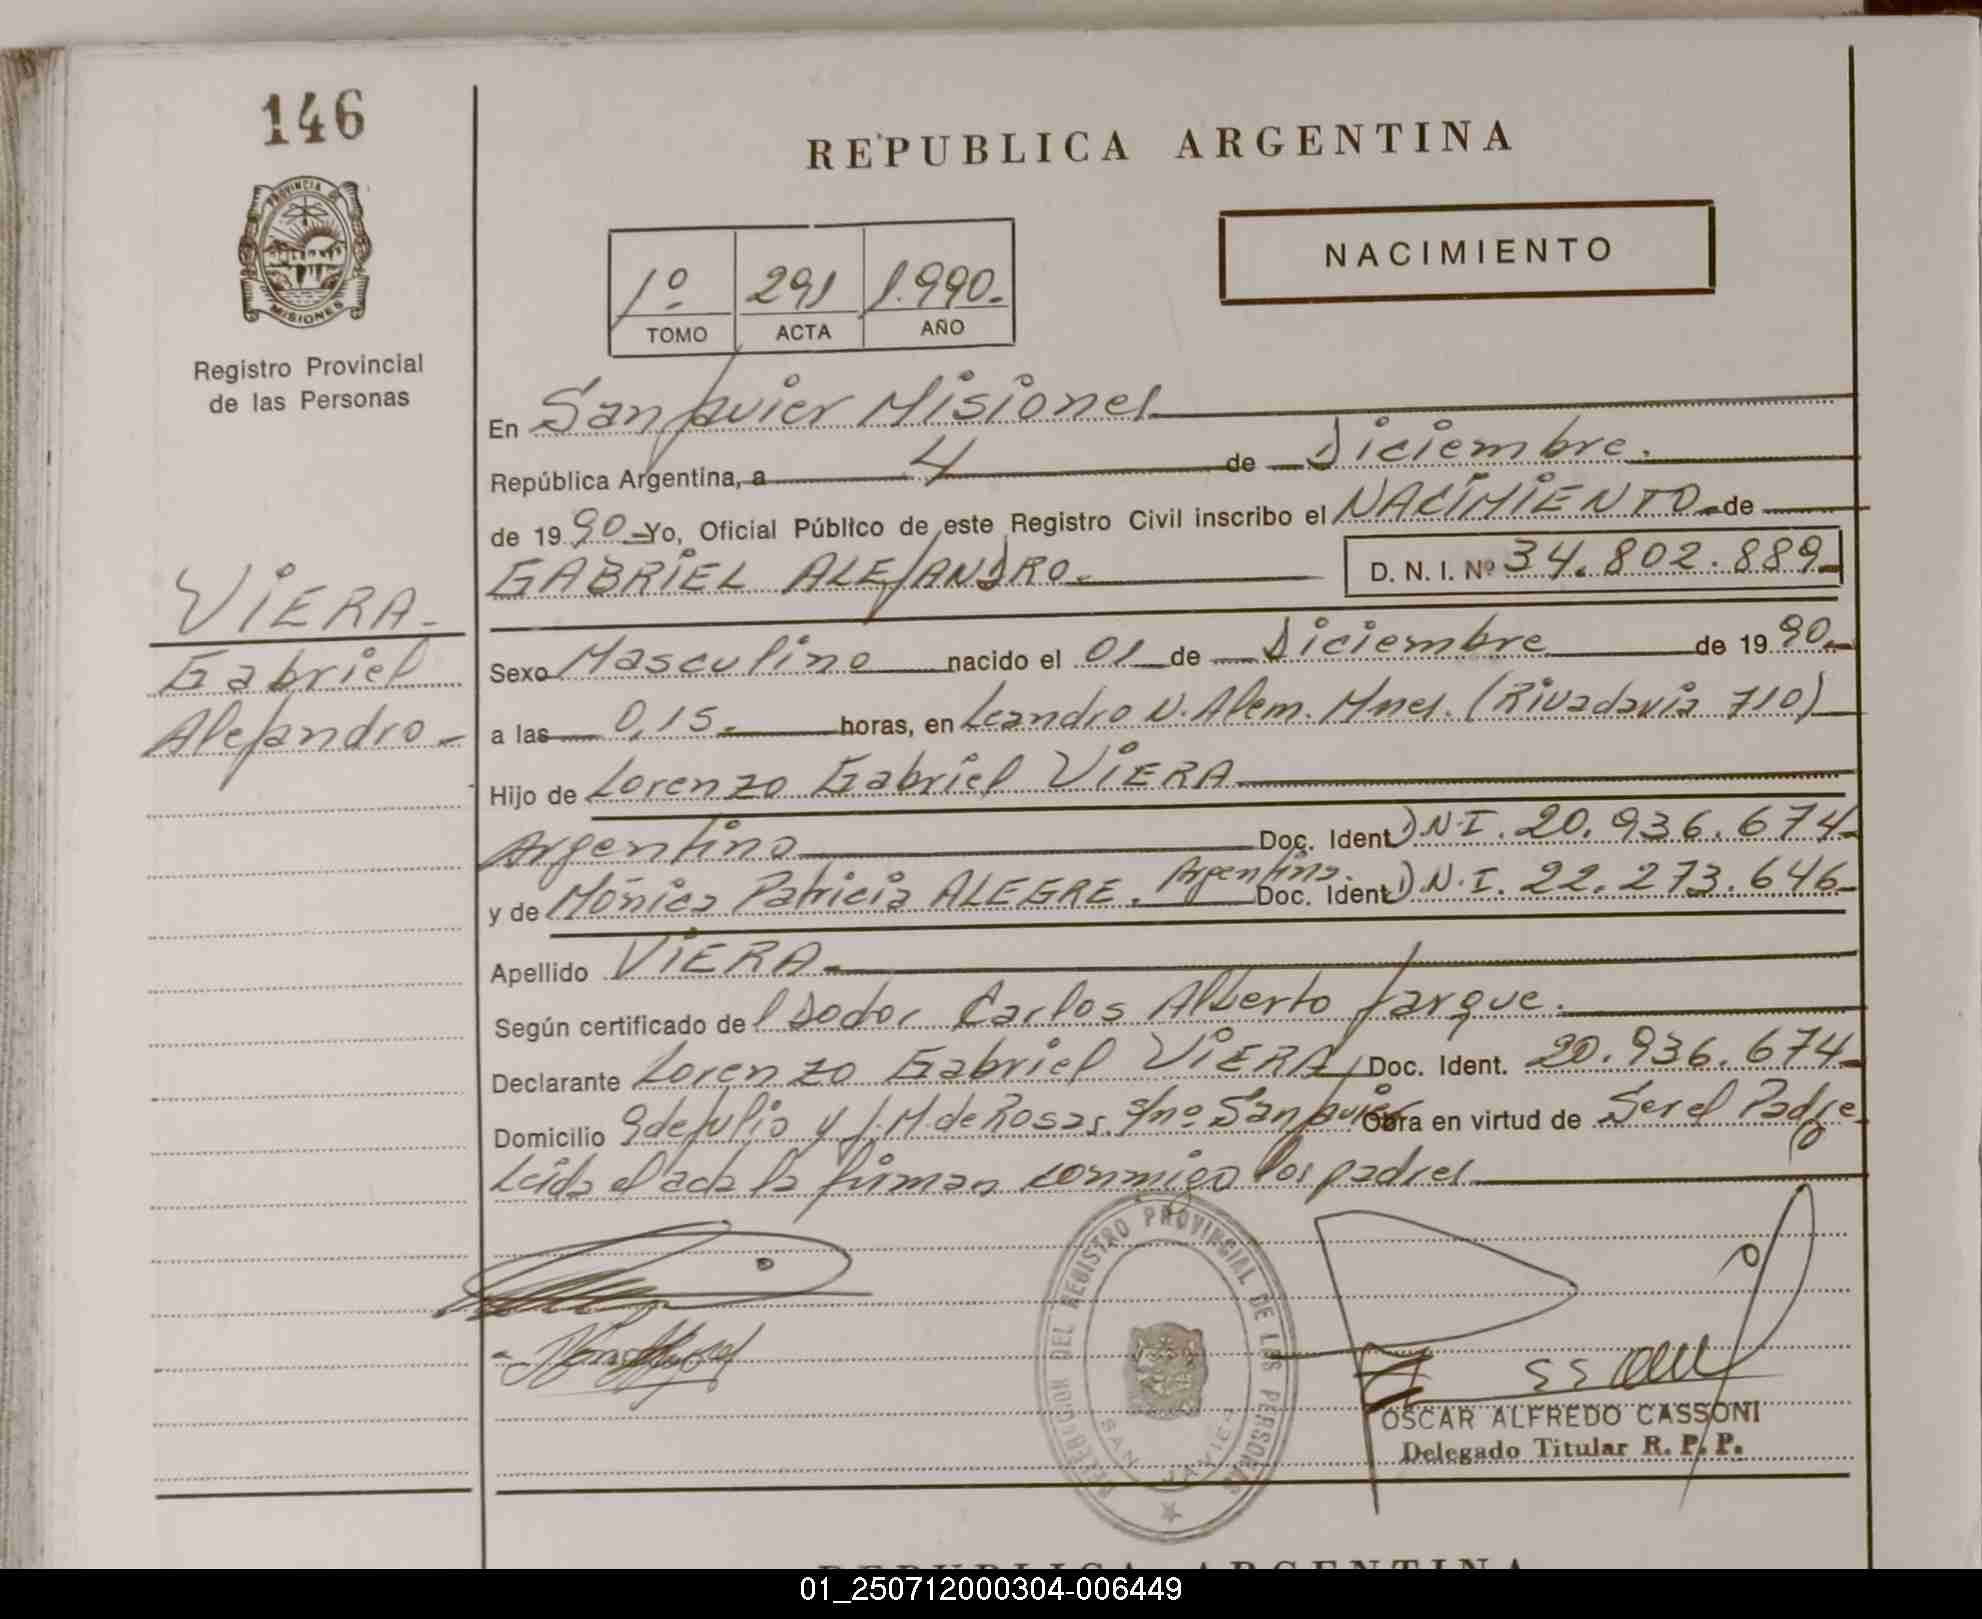 146
REPUBLICA ARGENTINA
PROVINCIA DE
MISIONES
NACIMIENTO
1º 291 1.990.
TOMO ACTA AÑO
Registro Provincial
de las Personas
En San Javier Misiones
República Argentina, a 4 de Diciembre.
de 19 90 Yo, Oficial Público de este Registro Civil inscribo el NACIMIENTO de
GABRIEL ALEJANDRO. D. N. I. Nº 34.802.889
VIERA.
Gabriel
Alejandro
Sexo Masculino nacido el 01 de Diciembre de 19 90
a las 0,15 horas, en Leandro N. Alem. Mnes. (Rivadavia 710)
Hijo de Lorenzo Gabriel VIERA
Argentino Doc. Ident D.N.I. 20.936.674
y de Mónica Patricia ALEGRE. Argentina. Doc. Ident D.N.I. 22.273.646
Apellido VIERA
Según certificado del Doctor Carlos Alberto Jarque.
Declarante Lorenzo Gabriel VIERA Doc. Ident. 20.936.674
Domicilio 9 de Julio y J.M. de Rosas s/nº San Javier Obra en virtud de Ser el Padre
Leida el acta la firman conmigo los padres
DEL REGISTRO PROVINCIAL DE LAS PERSONAS
SAN JAVIER
OSCAR ALFREDO CASSONI
Delegado Titular R. P. P.
REPUBLICA ARGENTINA
01_250712000304-006449